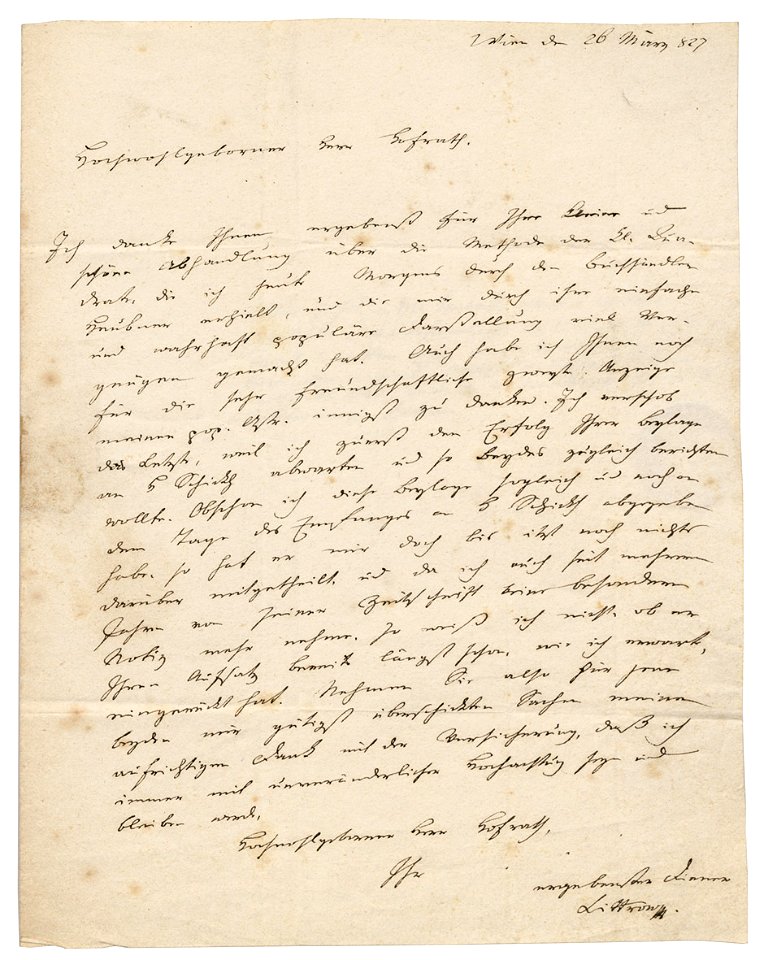 Wien den 26 März 827
Hochwohlgeborner Herr Hofrath.
Ich danke Ihnen ergebenst für Ihre kleine ud
schöne Abhandlung über die Methode der kl. Qua-
drate, die ich heute Morgens durch den Buchhändler
Heubner erhielt, und die mir durch ihre einfache
und wahrhaft populäre Darstellung viel Ver-
gnügen gemacht hat. Auch habe ich Ihnen noch
für die sehr freundschaftliche Anzeige
meiner pop. Astr. innigst zu danken. Ich verschob
das Letzte, weil ich zuerst den Erfolg Ihrer Beylage
an H Schickh abwarten ud so beydes zugleich berichten
wollte. Obschon ich diese Beylage sogleich ud noch an
dem Tage des Empfanges an H Schickh abgegeben
habe, so hat er mir doch bis itzt noch nichts
darüber mitgetheilt, ud da ich auch seit mehrern
Jahren von seiner Zeitschrift keine besondere
Notiz mehr nehme, so weiß ich nicht, ob er
Ihren Aufsatz bereits längst schon, wie ich erwarte,
eingerückt hat. Nehmen Sie also für jene
beyden mir gütigst überschickten Sachen meinen
aufrichtigen Dank mit der Versicherung, daß ich
immer mit unveränderlicher Hochachtung seyn und
bleiben werde,
Hochwohlgeborner Herr Hofrath,
Ihr
ergebenster Diener
Littrow.